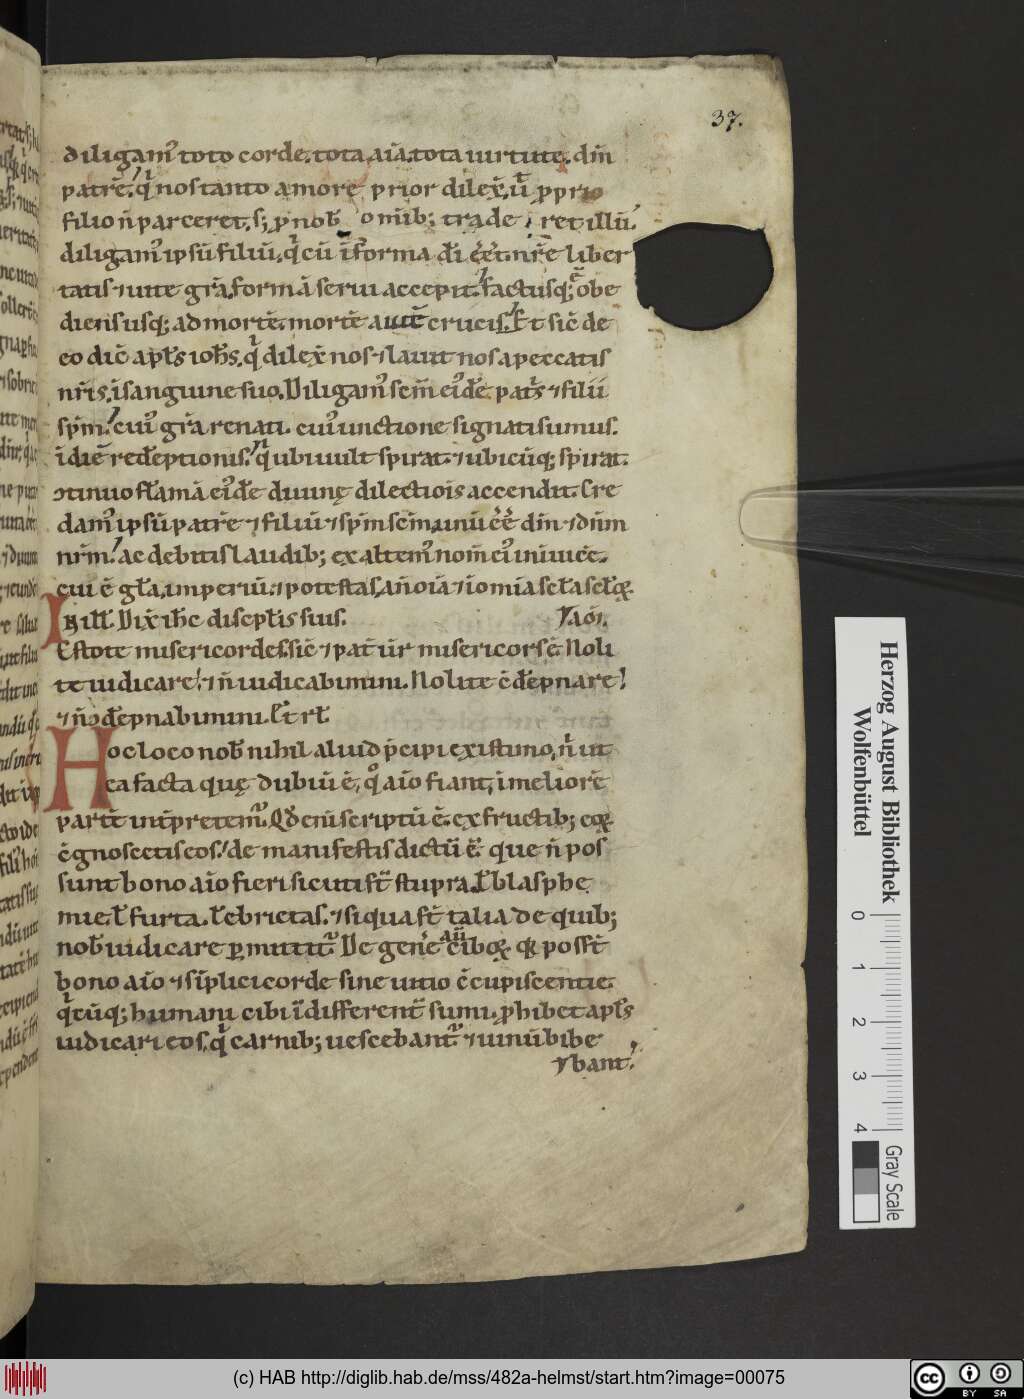 37.
diligam᷒ toto corde. tota aīa. tota uirtute. dm̄
patrē. q̄ nos tanto amore prior dilex̄. ut̄ pprio
filio n̄ parceret. s; p nob̄ om̄ib; traderet illū.
diligam᷒ ipsū filiū. q̄ cū ī forma dī eēt. nr̄e liber
tatis ⁊ uite grā. formā serui accepit. factusq; obe
diens usq; ad mortē. mortē autē crucis. Et sic̄ de
eo dic̄ apl̄s ioh̄s. q̄ dilex̄ nos ⁊ lauit nos a peccatis
nr̄is. ī sanguine suo. Diligam᷒ sc̄m ei᷒dē patr̄s ⁊ filii
sp̄m. cui᷒ grā renati. cui᷒ unctione signati sumus.
ī diē redēptionis. q̄ ubi uult spirat. ⁊ ubicūq; spirat.
ɔtinuo flāmā ei᷒dē diuinę dilectiōis accendit. Cre
dam᷒ ipsū patrē ⁊ filiū ⁊ sp̄m sc̄m. unū eē dm̄ ⁊ dn̄m
nr̄m. ac debitis laudib; exaltem᷒ nom̄ ei᷒ in inuicē.
cui ē gl̄a. imperiū. ⁊ potestas. añ oīa ⁊ ī omīa sc̄la sc̄loꝝ.
In ill̄. Dix̄ ih̄c discipl̄is suis.
Estote misericordes. sic̄ ⁊ pat̄ ur̄ misericors ē. Noli
te iudicare. ⁊ n̄ iudicabimini. Nolite ɔ̄dēpnare.
⁊ n̄ ɔdēpnabimini. Et rl̄.
Hoc loco nob̄ nihil aliud p̄cipi existimo. n̄ ut
ea facta quę dubiū ē. q̊ aīo fiant. ī meliorē
partē int̄pretem᷒. Qd̄ eni scriptū ē. ex fructib; eoꝝ
ɔ̄gnoscetis eos. de manifestis dictū ē. que n̄ pos
sunt bono aīo fieri. sicuti st̄ stupra. l̄ blasphe
mie. l̄ furta. l̄ ebrietas. ⁊ siqua st̄ talia. de quib;
nob̄ iudicare pmittit᷒. De genē aū ciboꝝ. q̄ poss̄t
bono aīo ⁊ sīplici corde sine uitio ɔ̄cupiscentie.
q̄cūq; humani cibi īdifferent̄ sumi. phibet apl̄s
iudicari eos. q̄ carnib; uescebant᷒ ⁊ uinū bibe
bant.
Herzog August Bibliothek
Wolfenbüttel
0 1 2 3 4
Gray Scale
(c) HAB http://diglib.hab.de/mss/482a-helmst/start.htm?image=00075
cc BY SA